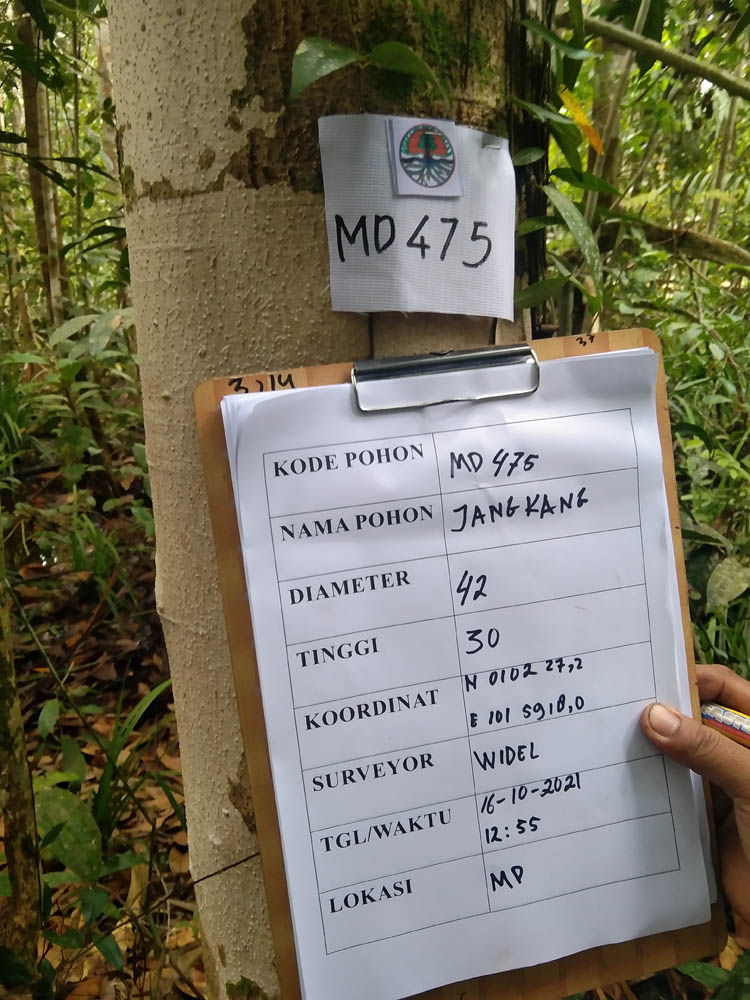 MD475
37
KODE POHON MD 475
NAMA POHON JANGKANG
DIAMETER 42
TINGGI 30
KOORDINAT N 0102 27,2
E 101 5918,0
SURVEYOR WIDEL
TGL/WAKTU 16-10-2021
12:55
LOKASI MD